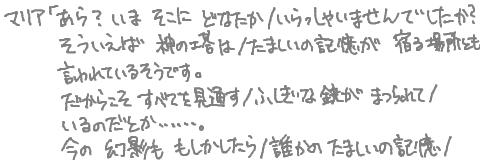 マリア「あら？いま そこに どなたか/いらっしゃいませんでしたか？
そういえば 神の塔は/たましいの記憶が 宿る場所とも
言われているそうです。
だからこそ すべてを見通す/ふしぎな鏡が まつられて/
いるのだとか……。
今の 幻影も もしかしたら/誰かの たましいの記憶/